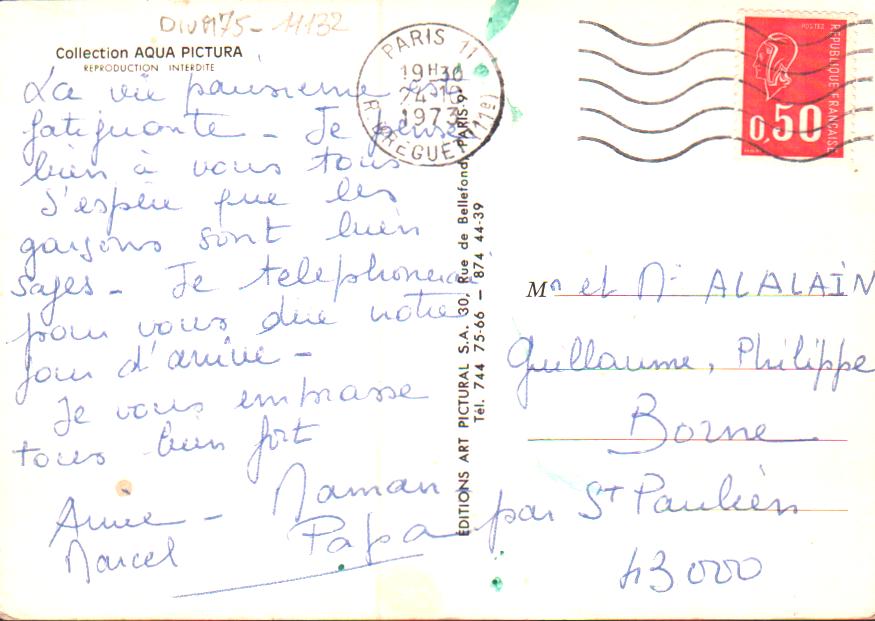 DIV M75 - 11132
Collection AQUA PICTURA
REPRODUCTION INTERDITE
La vie parisienne est
fatiguante - Je pense
bien à vous tous
J'espère que les
garçons sont bien
sages - Je telephonerai
pour vous dire notre
jour d'arrivé -
Je vous embrasse
tous bien fort
Annie - Maman
Marcel Papa
PARIS 11
19H30
24-10
1973
R. BREGUET (11e)
ÉDITIONS ART PICTURAL S.A. 30, Rue de Bellefond, PARIS-9e
Tél. 744 75-66 — 874 44-39
POSTES
RÉPUBLIQUE FRANÇAISE
0,50
Mr et Me ALALAIN
Guillaume, Philippe
Borne
par St Paulien
43000